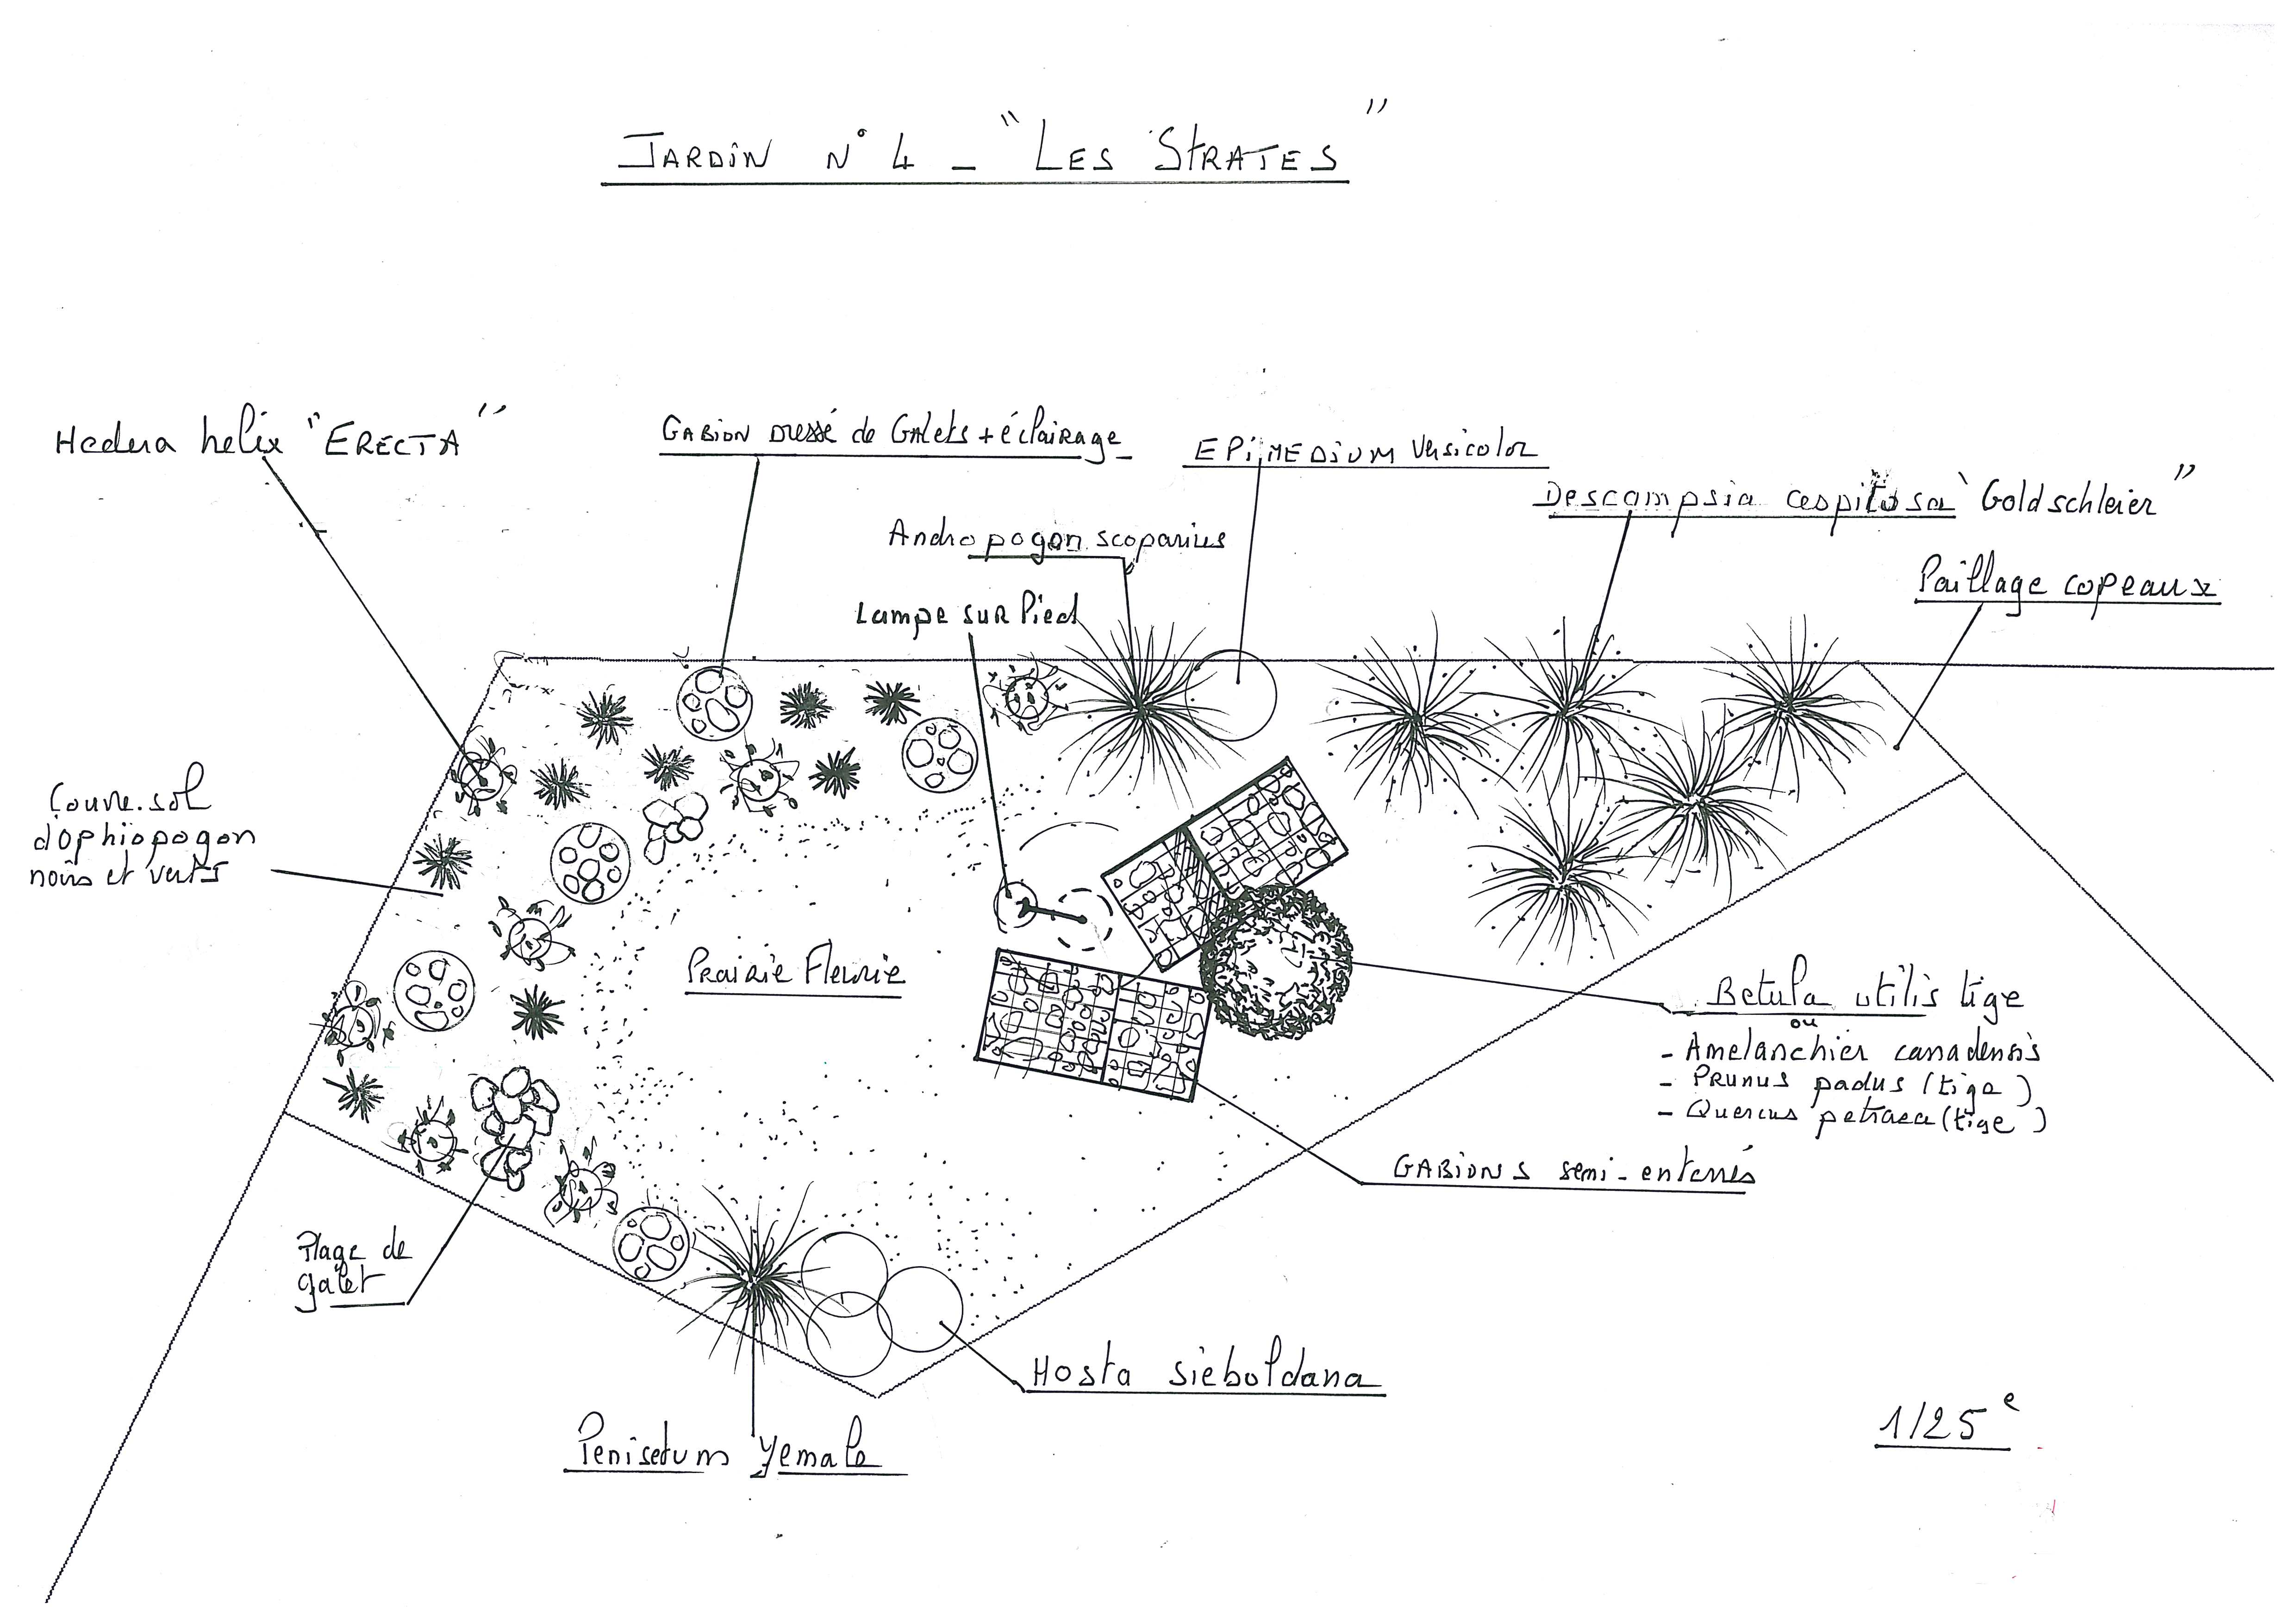 JARDIN N° 4 - "LES STRATES"
Hedera helix "ERECTA"
GABION DRESSÉ de GALETS + éclairage
EPIMEDIUM Versicolor
Descampsia cespitosa "Goldschleier"
Andropogon scoparius
Paillage copeaux
Lampe sur Pied
Couvre.sol
d'ophiopogon
noirs et verts
Prairie Fleurie
Betula utilis tige
ou
- Amelanchier canadensis
- PRUNUS padus (tige)
- Quercus petraea (tige)
GABIONS semi-enterrés
Plage de
galet
Hosta sieboldana
Penisetum Yemale
1/25e